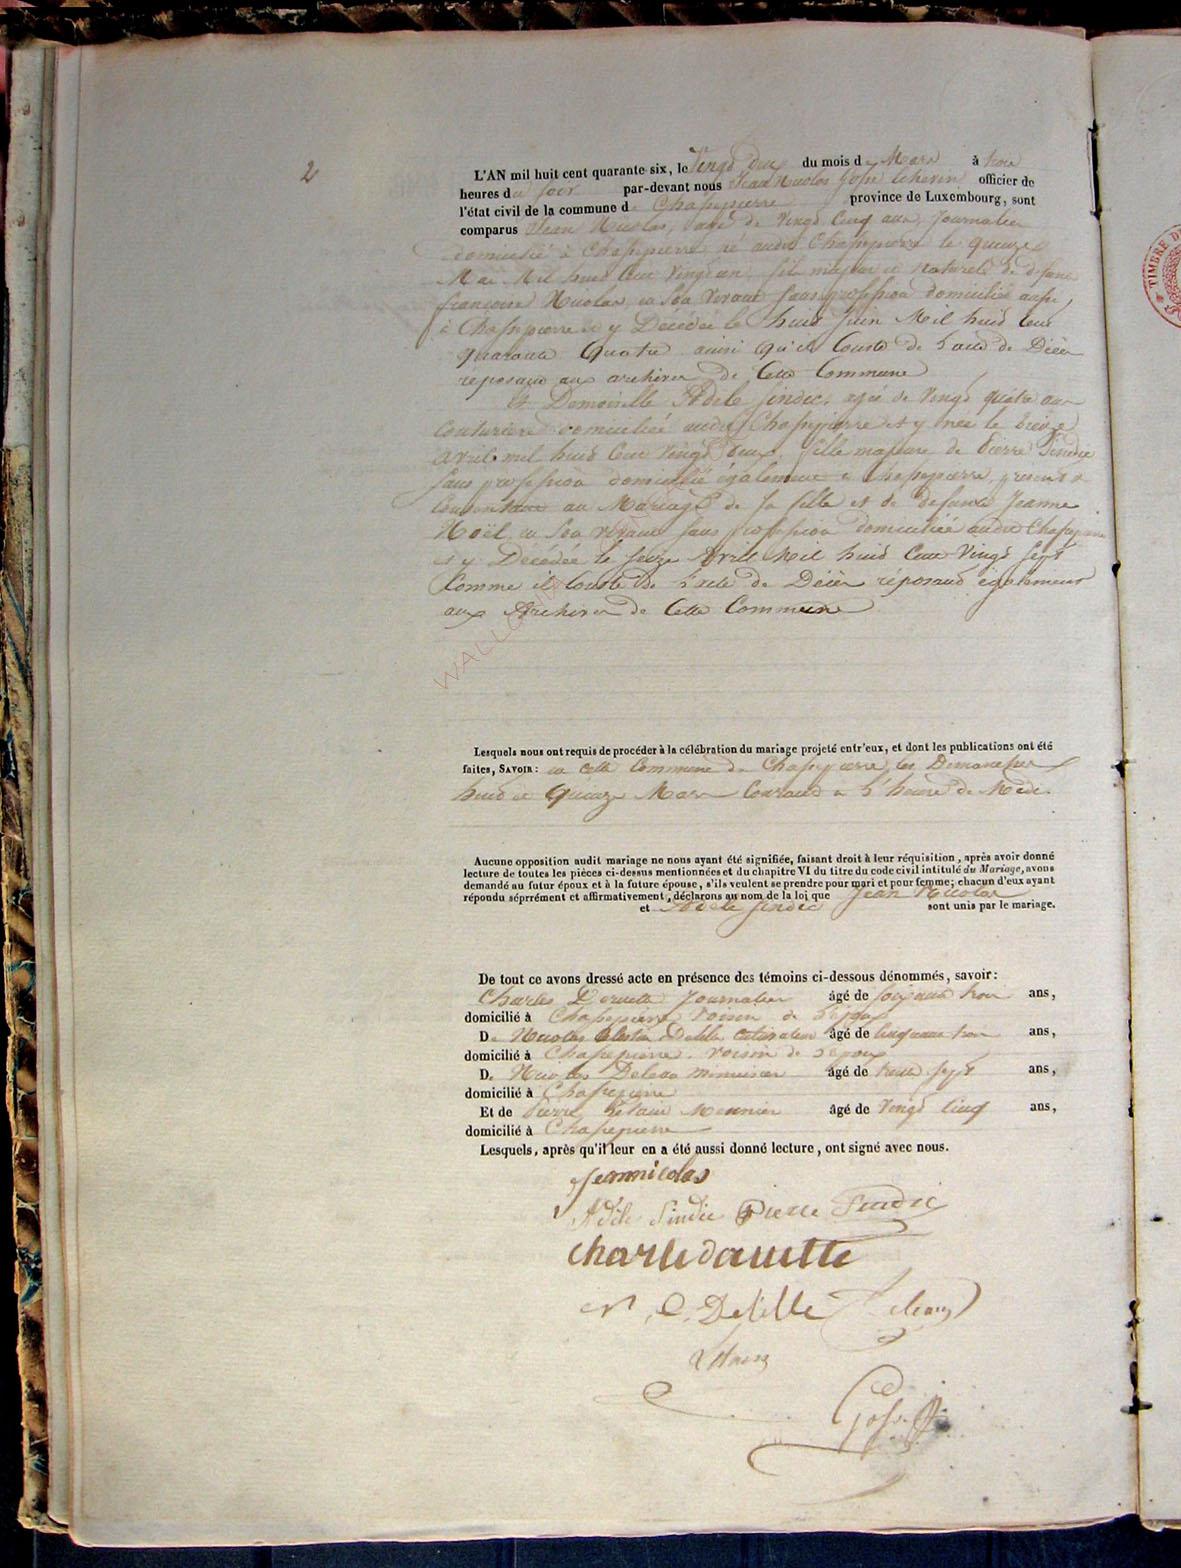 2
L'AN mil huit cent quarante six, le Vingt Deux du mois de Mars à trois
heures du soir par-devant nous Jean Nicolas officier de
l'état civil de la commune de Chassepierre province de Luxembourg, sont
comparus Jean Nicolas, âgé de Vingt Cinq ans Journalier
domicilié à Chassepierre né audit Chassepierre le quinze
Mai Mil huit Cent Vingt un fils majeur et naturel de défunte
françoise Nicolas en son vivant sans profession domiciliée aussi
à Chassepierre et y Décédée le huit Juin Mil huit Cent
quarante Quatre ainsi qu'il Conste de l'acte de Décès
reposant aux archives de Cette Commune
Et Demoiselle Adèle Sindic, agée de Vingt quatre ans
Couturière domiciliée audit Chassepierre et y née le treize
avril mil huit Cent Vingt Deux fille majeure de Pierre Sindic
sans profession domicilié également à Chassepierre, présent et
Consentant au Mariage de sa fille et de défunte Jeanne
Noël en son vivant sans profession domiciliée audit Chassepierre
et y Décédée le seize Avril Mil huit Cent Vingt Sept
Comme il Conste de l'acte de Décès réposant également
aux Archives de Cette Commune
Lesquels nous ont requis de procéder à la célébration du mariage projeté entr'eux, et dont les publications ont été
faites, SAVOIR: en cette Commune de Chassepierre les Dimanches
huit et Quinze Mars Courant à l'heure de Midi.
Aucune opposition audit mariage ne nous ayant été signifiée, faisant droit à leur réquisition, après avoir donné
lecture de toutes les pièces ci-dessus mentionnées et du chapitre VI du titre du code civil intitulé du Mariage, avons
demandé au futur époux et à la future épouse, s'ils veulent se prendre pour mari et pour femme; chacun d'eux ayant
répondu séprément et affirmativement, déclarons au nom de la loi que Jean Nicolas
et Adèle Sindic sont unis par le mariage.
De tout ce avons dressé acte en présence des témoins ci-dessous dénommés, savoir:
Charles Journalier âgé de soixante trois ans,
domicilié à Chassepierre voisin de l'époux
De Nicolas Delille cultivateur âgé de Cinquante ans,
domicilié à Chassepierre voisin de l'époux
De Nicolas menuisier âgé de trente sept ans,
domicilié à Chassepierre
Et de Pierre Meunier âgé de Vingt Cinq ans,
domicilié à Chassepierre
Lesquels, après qu'il leur en a été aussi donné lecture, ont signé avec nous.
Jean nicolas
Adèle Sindic Pierre Sindic
Charle dauutte
N. C. Delille